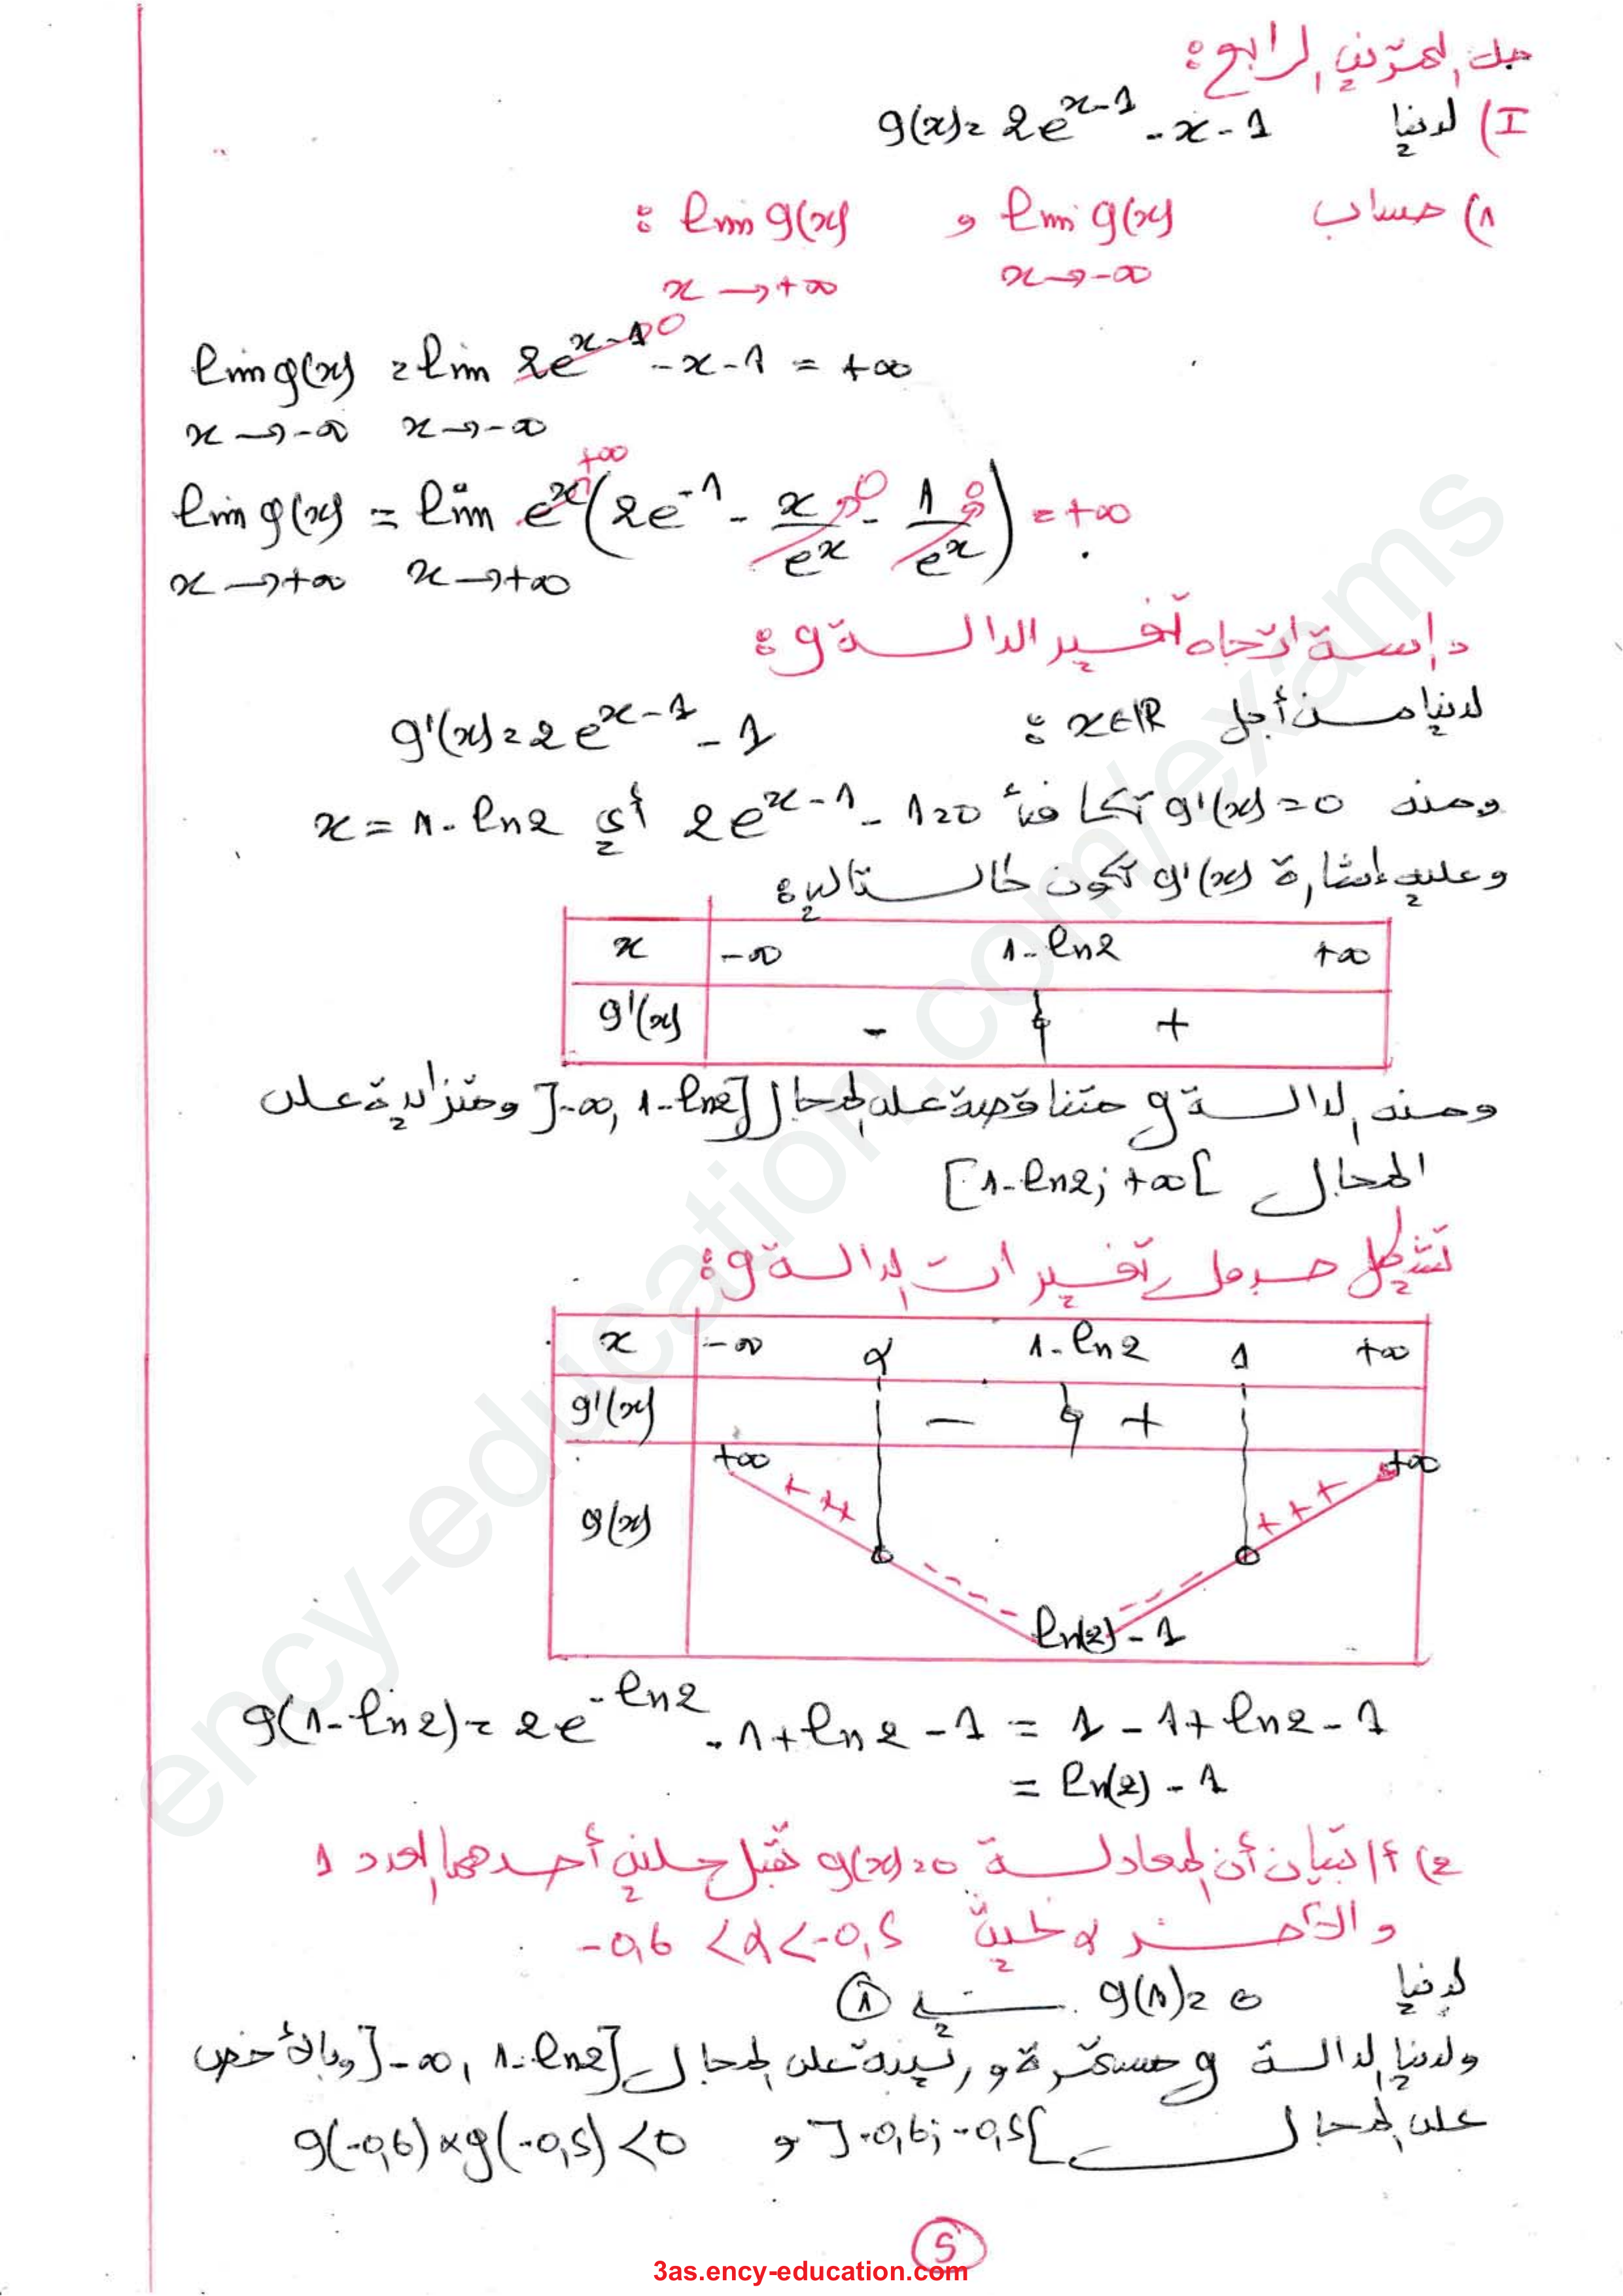 حل التمرين الرابع :
I) لدينا g(x) = 2e^{x-1} - x - 1
1) حساب lim g(x) و lim g(x) :
x→-∞ x→+∞
lim g(x) = lim 2e^{x-1} →0 - x - 1 = +∞
x→-∞ x→-∞
lim g(x) = lim e^x →+∞ (2e^{-1} - x/e^x →0 - 1/e^x →0) = +∞
x→+∞ x→+∞
دراسة اتجاه تغير الدالة g :
لدينا من أجل x∈ℝ : g'(x) = 2e^{x-1} - 1
ومنه g'(x) = 0 تكافئ 2e^{x-1} - 1 = 0 أي x = 1 - ln2
وعليه إشارة g'(x) تكون كالتالي :
x -∞ 1-ln2 +∞
g'(x) - 0 +
ومنه الدالة g متناقصة على المجال ]-∞, 1-ln2] ومتزايدة على
المجال [1-ln2; +∞[
تشكيل جدول تغيرات الدالة g :
x -∞ α 1-ln2 1 +∞
g'(x) - 0 +
g(x) +∞ +++ 0 --- ln(2)-1 --- 0 +++ +∞
g(1-ln2) = 2e^{-ln2} - 1 + ln2 - 1 = 1 - 1 + ln2 - 1
= ln(2) - 1
2) أ/ تبيان أن المعادلة g(x) = 0 تقبل حلين أحدهما العدد 1
والآخر α حيث -0,6 < α < -0,5
لدينا g(1) = 0 ①
ولدينا الدالة g مستمرة ورتيبة على المجال ]-∞, 1-ln2] وبالأخص
على المجال ]-0,6; -0,5[ و g(-0,6) × g(-0,5) < 0
5
3as.ency-education.com
ency-education.com/exams